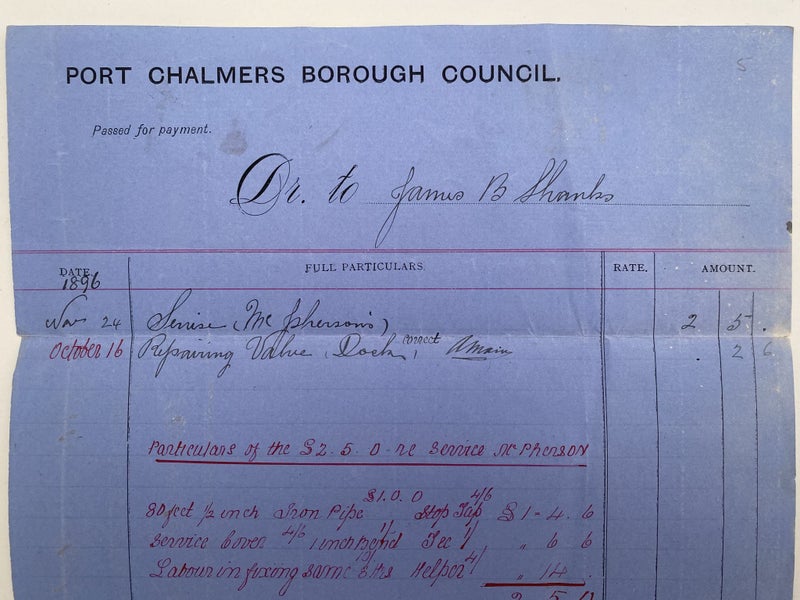 5
PORT CHALMERS BOROUGH COUNCIL.
Passed for payment.
Dr. to James B Shanks
DATE. FULL PARTICULARS. RATE. AMOUNT.
1896
Nov 24 Servise (Mc Pherson's) 2 5 .
October 16 Repairing Valve (Dock) correct . 2 6
Particulars of the £2. 5. 0 re Service McPherson
£1. 0. 0 4/6
80 feet 1/2 inch Iron Pipe Stop Tap £ 1 - 4. 6
Service Cover 4/6 1 inch Bend 1/ Tee 1/ " 6 6
Labour in fixing same Helper 4/ " 14 .
2 5 0